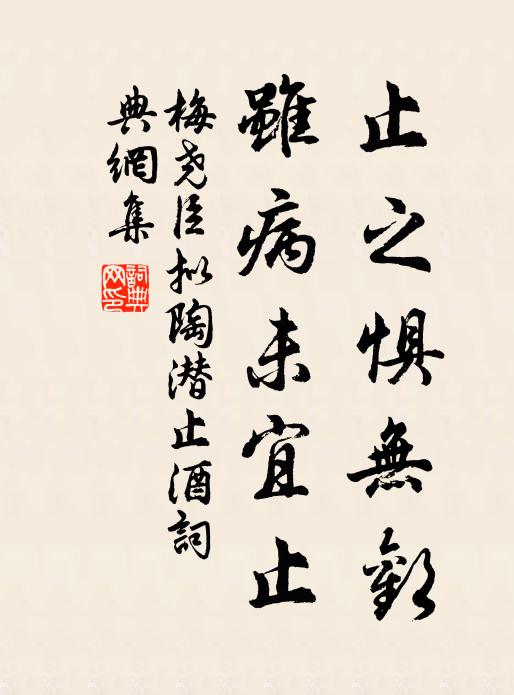 止之惧無歡
雖病未宜止
梅尧臣拟陶潜止酒詞
典網集
詞典網印